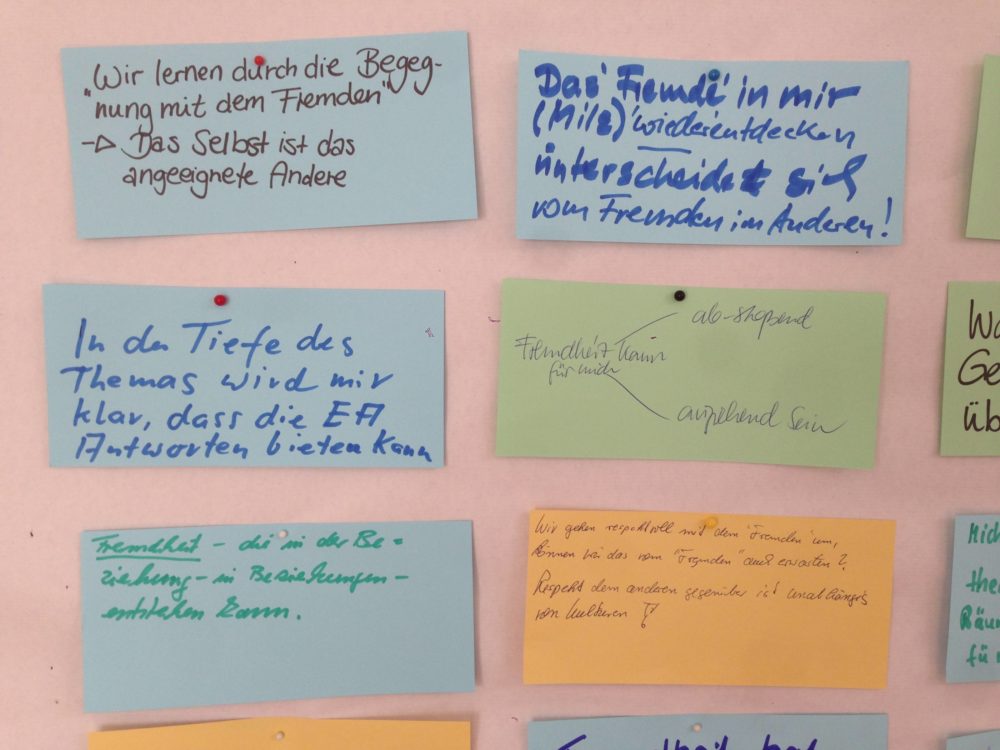 "Wir lernen durch die Begeg-
nung mit dem Fremden"
-▷ Das Selbst ist das
angeeignete Andere
Das 'Fremde' in mir
(Milz) wiederentdecken
unterscheidet sich
vom Fremden im Anderen!
In der Tiefe des
Themas wird mir
klar, dass die EA
Antworten bieten kann
Fremdheit kann
für mich
ab-stoßend
anziehend sein
Wa
Ge
üb
Fremdheit - die in der Be=
ziehung - in Beziehungen -
entstehen kann.
Wir gehen respektvoll mit dem "Fremden" um,
können wir das vom "Fremden" auch erwarten?
Respekt dem anderen gegenüber ist unabhängig
von Kulturen !
Mich
the
Räum
für